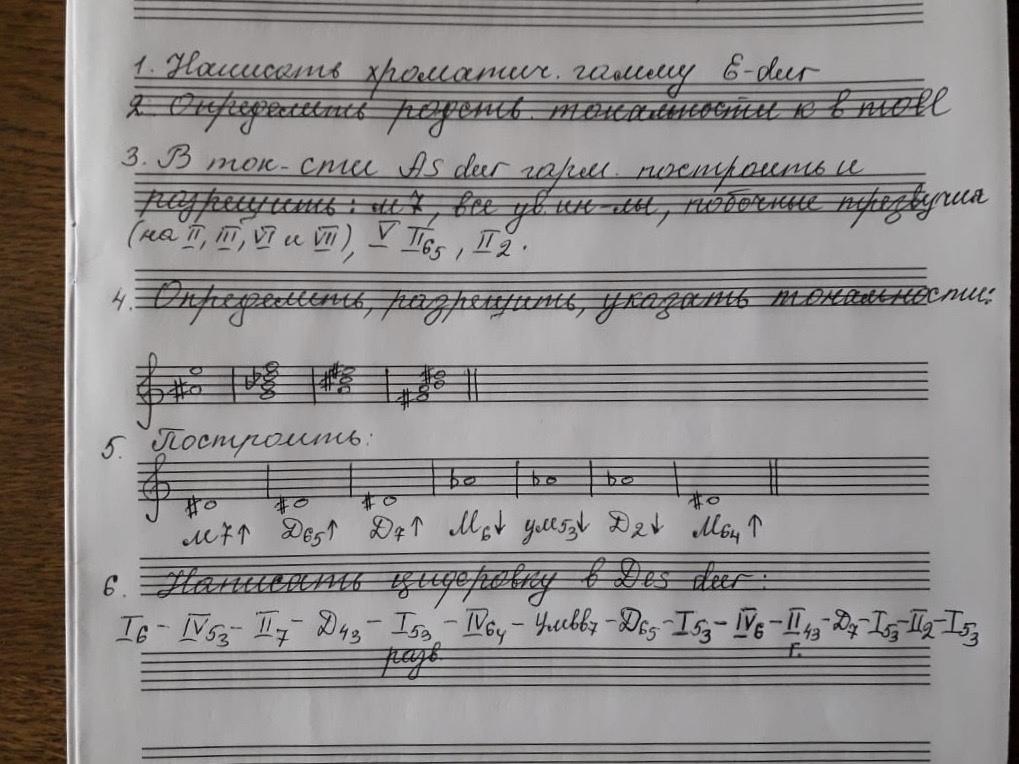 1. Написать хроматич. гамму E-dur
2. Определить родств. тональности к b moll
3. В ток-сти As dur гарм. построить и
разрешить: м7, все ув. ин-лы, побочные трезвучия
(на II, III, VI и VII), V II65, II2.
4. Определить, разрешить, указать тональности:
5. Построить:
м7↑ D65↑ D7↑ М6↓ ум53↓ D2↓ М64↑
6. Написать цифровку в Des dur:
I6 - IV53 - II7 - D43 - I53 - IV64 - умвв7 - D65 - I53 - IV6 - II43 - D7 - I53 - II2 - I53
разв. г.